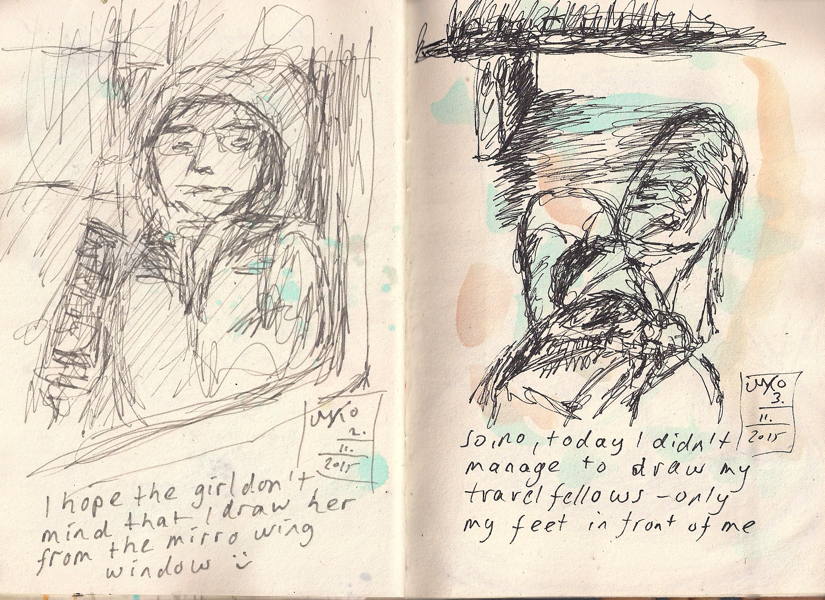 2.
11.
2015
I hope the girl don't
mind that I draw her
from the mirro wing
window
3.
11.
2015
So, no, today I didn't
manage to draw my
travel fellows - only
my feet in front of me